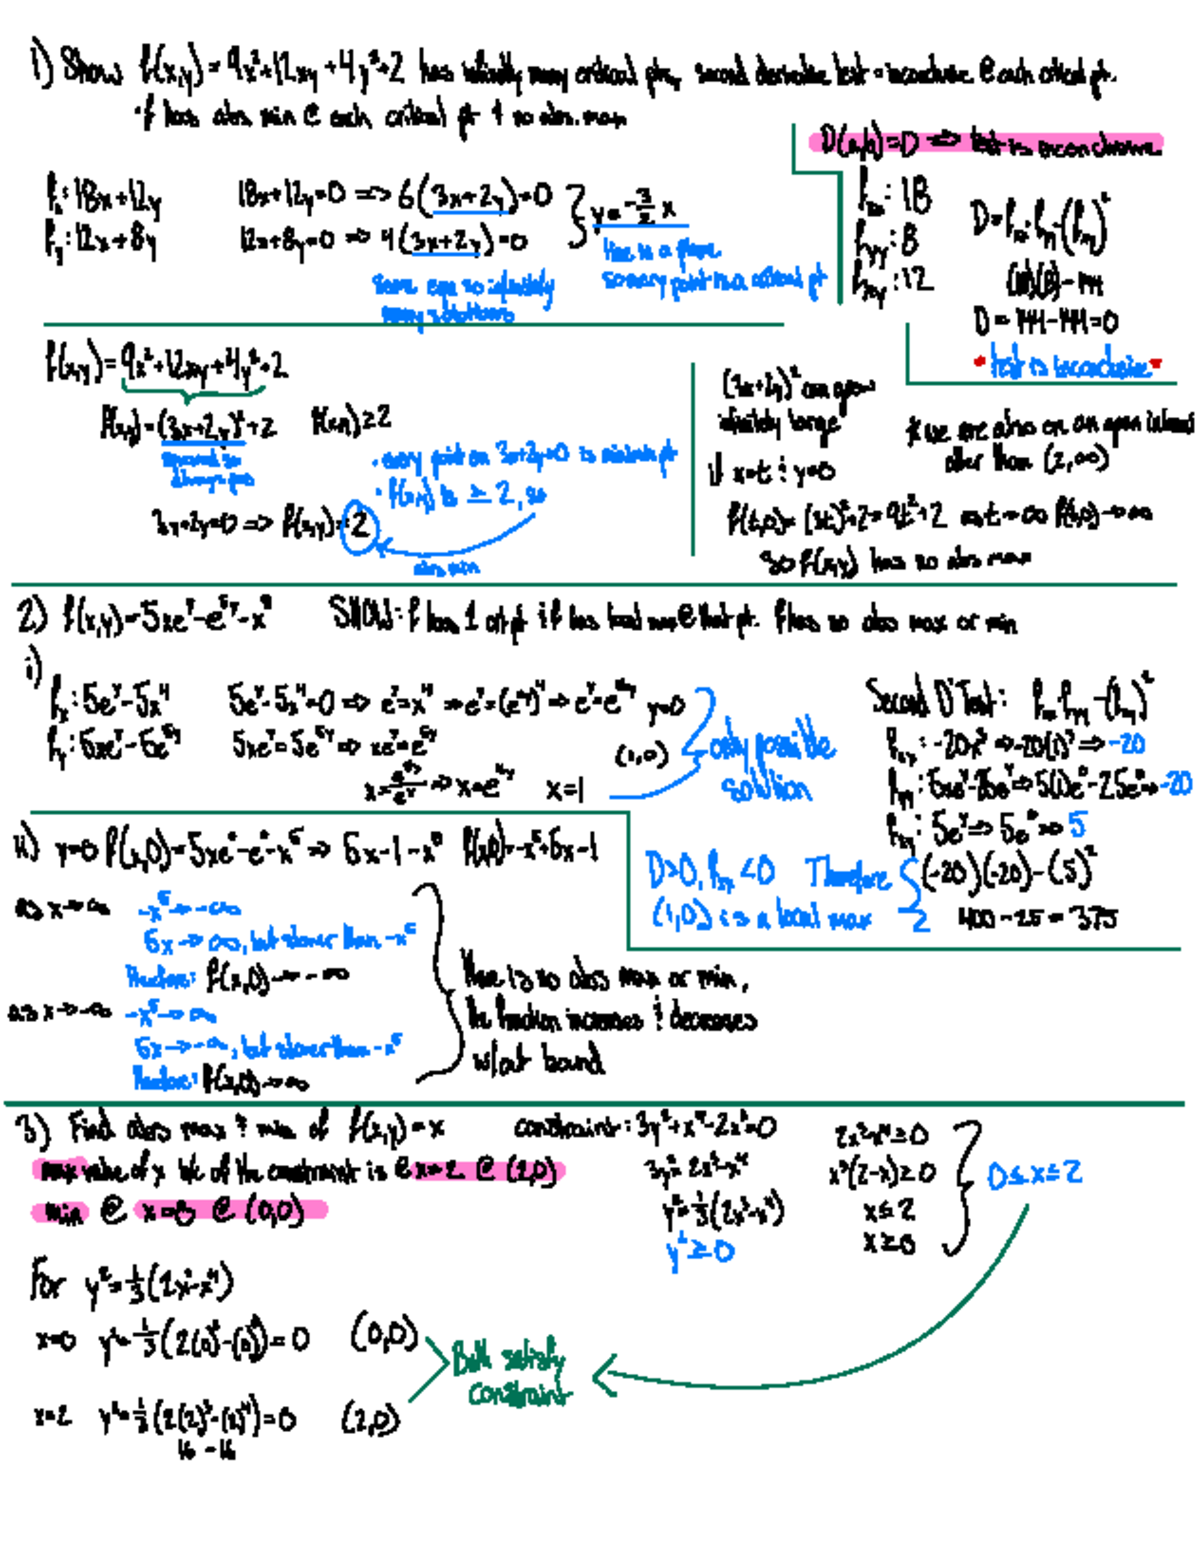 1) Show f(x,y) = 9x²+12xy+4y²+2 has infinitely many critical pts, second derivative test = inconclusive @ each critical pt.
· f has abs min @ each critical pt & no abs. max
D(a,b)=0 => test is inconclusive
fx: 18x+12y 18x+12y=0 => 6(3x+2y)=0
fy: 12x+8y 12x+8y=0 => 4(3x+2y)=0
y = -3/2 x
line in a plane
so every point is a critical pt
same eqn so infinitely
many solutions
fxx: 18
fyy: 8
fxy: 12
D = fxx·fyy-(fxy)²
(18)(8)-144
D = 144-144=0
* test is inconclusive *
f(x,y) = 9x²+12xy+4y²+2
f(x,y) = (3x+2y)²+2 f(x,y) ≥ 2
squared so
always pos
· every point on 3x+2y=0 is minimum pt
· f(x,y) is ≥ 2, so
3x+2y=0 => f(x,y)=2
abs min
(3x+2y)² can grow
infinitely large
if x=t & y=0
* we are also on an open interval
other than (2,∞)
f(t,0) = (3t)²+2 = 9t²+2 as t→∞ f(t,0)→∞
so f(x,y) has no abs max
2) f(x,y) = 5xe^y-e^5y-x^5 SHOW: f has 1 crit pt & f has local max @ that pt. f has no abs max or min
i)
fx: 5e^y-5x⁴ 5e^y-5x⁴=0 => e^y=x⁴ => e^y=(e^4y)⁴ => e^y=e^16y y=0
fy: 5xe^y-5e^5y 5xe^y=5e^5y => xe^y=e^5y (1,0)
x = e^5y/e^y => x=e^4y x=1
only possible
solution
Second D Test: fxx·fyy-(fxy)²
fxx: -20x³ => -20(1)³ => -20
fyy: 5xe^y-25e^5y => 5(1)e⁰-25e⁰ => -20
fxy: 5e^y => 5e⁰ => 5
(-20)(-20)-(5)²
400-25 = 375
D>0, fxx<0 Therefore
(1,0) is a local max
ii) y=0 f(x,0)=5xe⁰-e⁰-x⁵ => 5x-1-x⁵ f(x,0)=-x⁵+5x-1
as x→∞ -x⁵→-∞
5x→∞, but slower than -x⁵
Therefore: f(x,0)→-∞
as x→-∞ -x⁵→∞
5x→-∞, but slower than -x⁵
Therefore: f(x,0)→∞
there is no abs max or min,
the function increases & decreases
w/out bound
3) Find abs max & min of f(x,y)=x constraint: 3y²+x⁴-2x³=0
max value of x b/c of the constraint is @ x=2 @ (2,0)
min @ x=0 @ (0,0)
3y²=2x³-x⁴
y²=1/3(2x³-x⁴)
y²≥0
2x³-x⁴≥0
x³(2-x)≥0
x≤2
x≥0
0≤x≤2
For y²=1/3(2x³-x⁴)
x=0 y²=1/3(2(0)³-(0)⁴)=0 (0,0)
Both satisfy
constraint
x=2 y²=1/3(2(2)³-(2)⁴)=0 (2,0)
16 - 16